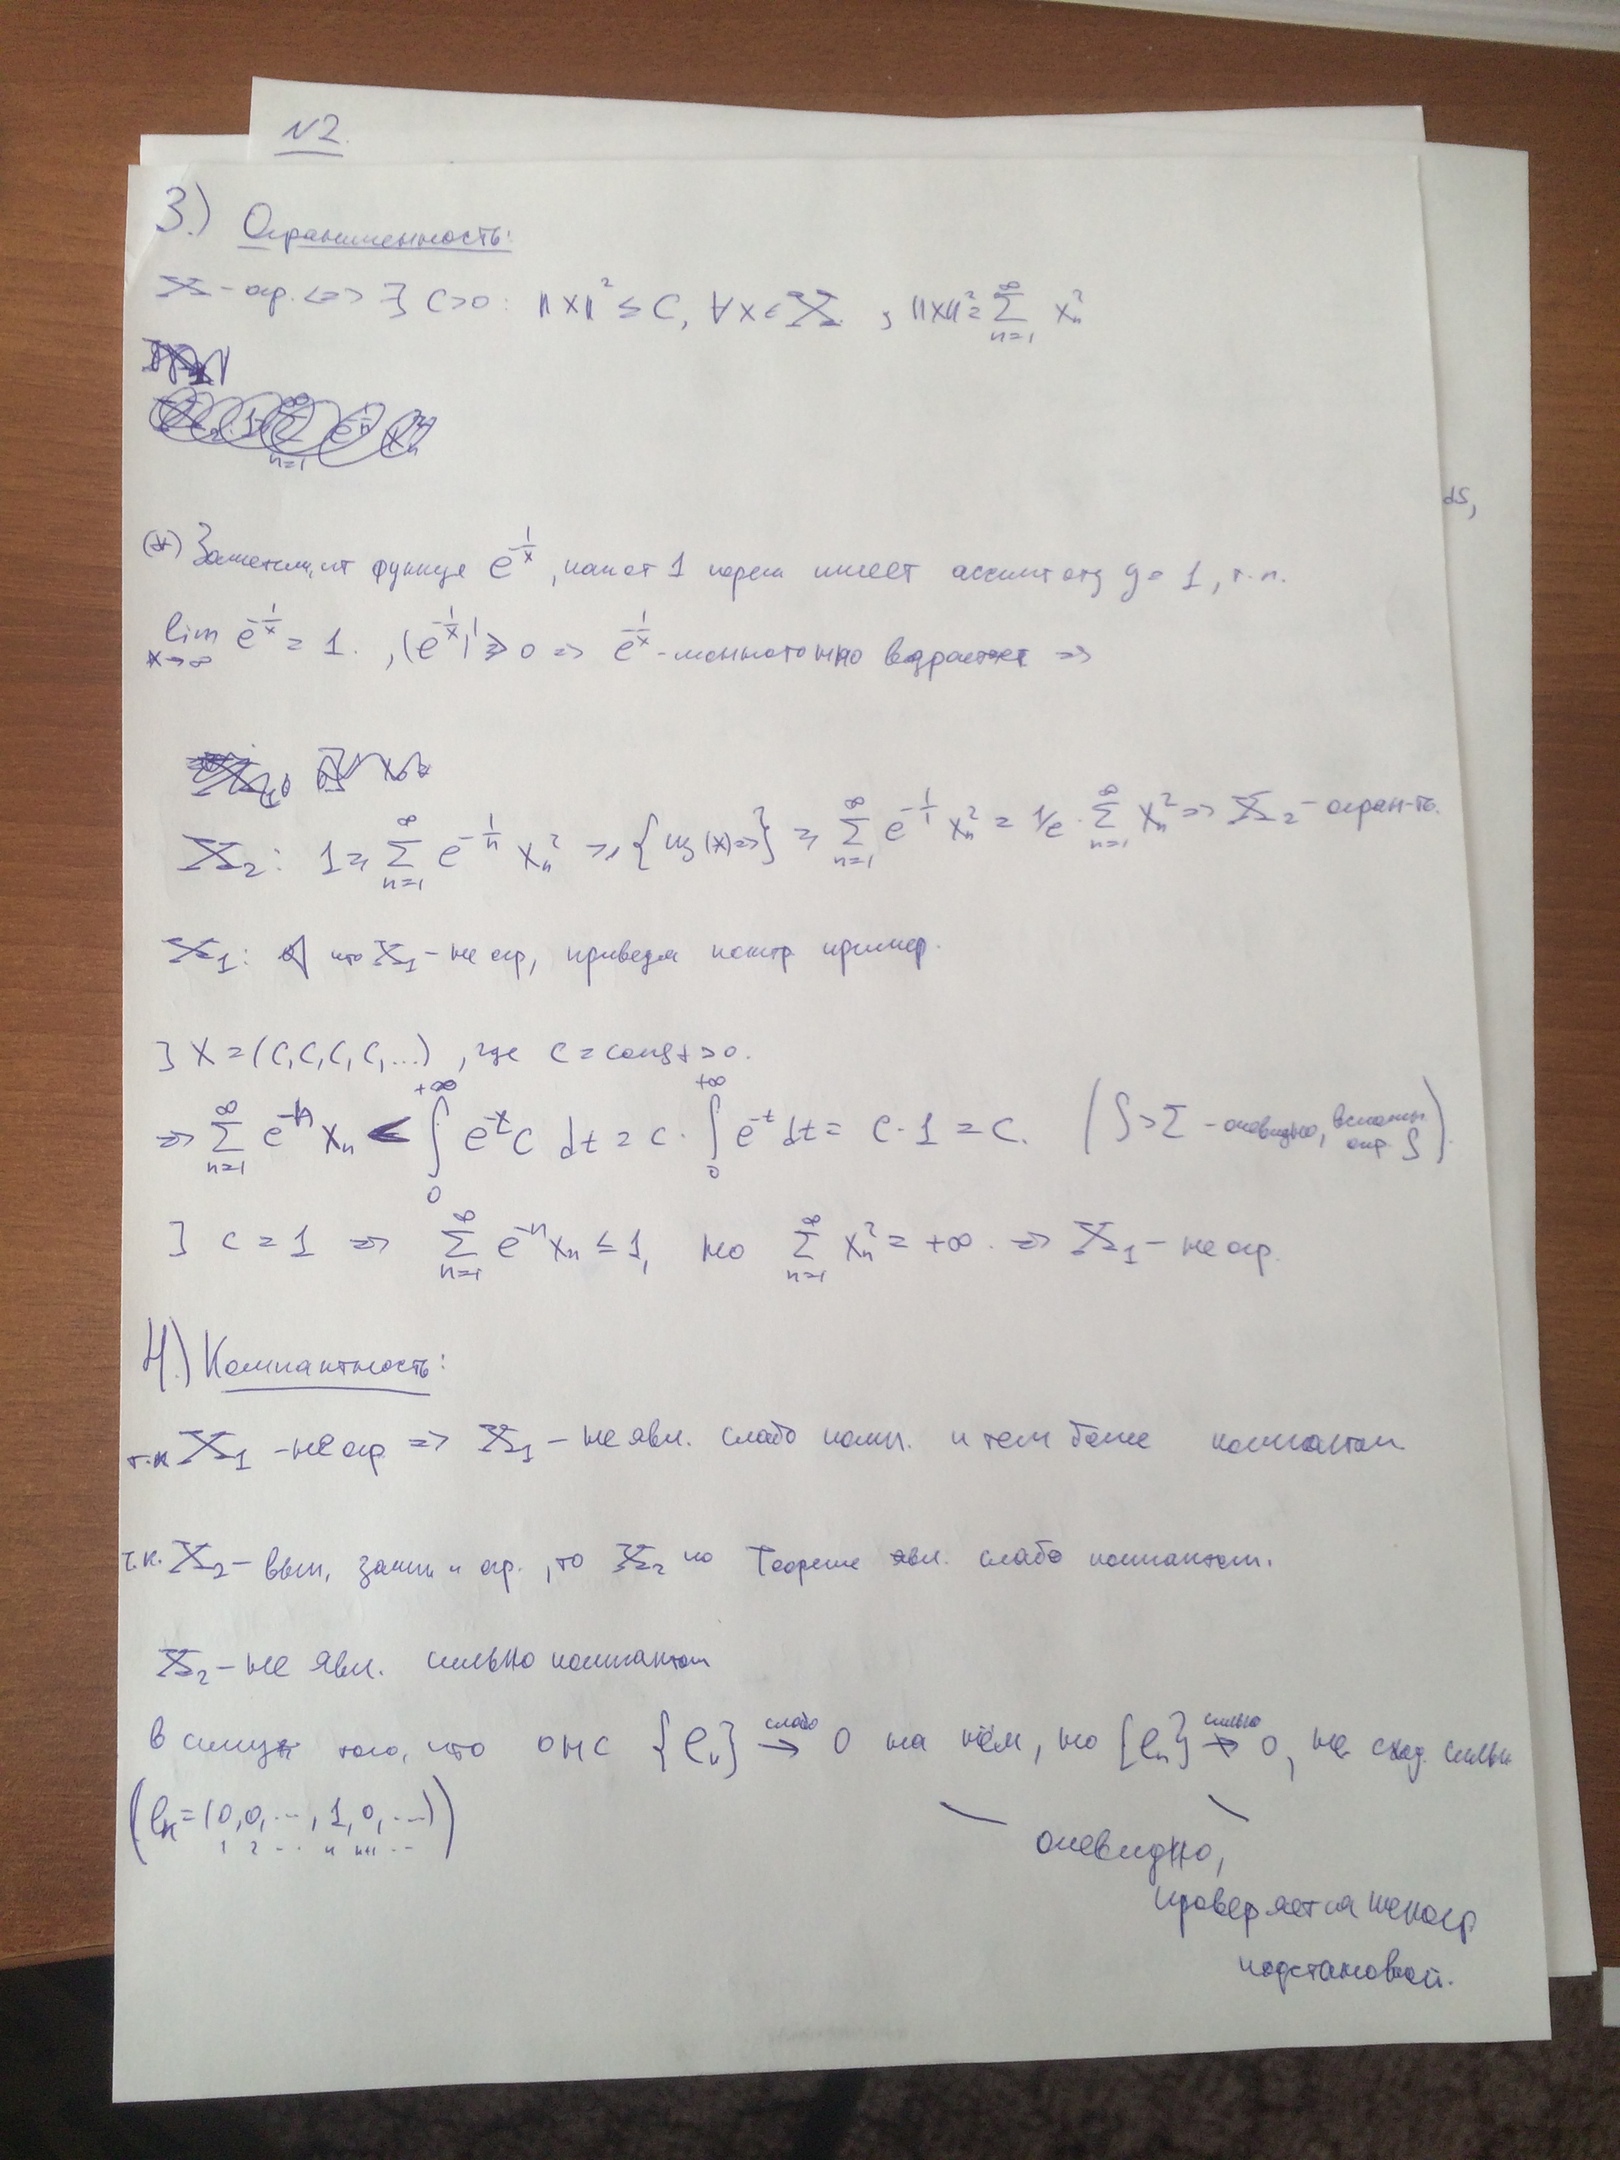 N2.
3.) Ограниченность:
X - огр. <=> ∃ C>0: ||x||² ≤ C, ∀x∈X ; ||x||² = ∑_{n=1}^{∞} x_n²
∑_{n=1}^{∞}
ds,
(*) Заметим, что функция e^{-1/x}, имеет асимптоту y = 1, т.к.
lim_{x→∞} e^{-1/x} = 1. , (e^{-1/x})' ≥ 0 => e^{-1/x} - монотонно возрастает =>
X₂: 1 ≥ ∑_{n=1}^{∞} e^{-1/n} x_n² ≥ {из (*) =>} ≥ ∑_{n=1}^{∞} e^{-1/1} x_n² = 1/e · ∑_{n=1}^{∞} x_n² => X₂ - огран-ть.
X₁: что X₁ - не огр, приведём контр пример.
∃ X = (C, C, C, C, ...) , где C = const > 0.
=> ∑_{n=1}^{∞} e^{-n} x_n < ∫_0^{+∞} e^{-t} C dt = C · ∫_0^{+∞} e^{-t} dt = C · 1 = C. (∫ > ∑ - очевидно, вспомним опр. ∫)
∃ C = 1 => ∑_{n=1}^{∞} e^{-n} x_n ≤ 1, но ∑_{n=1}^{∞} x_n² = +∞. => X₁ - не огр.
4.) Компактность:
т.к X₁ - не огр => X₁ - не явл. слабо комп. и тем более компактом
т.к. X₂ - вып, замк и огр., то X₂ по Теореме явл. слабо компактом.
X₂ - не явл. сильно компактом
в силу того, что ОНС {e_n} →^{слабо} 0 на нём, но {e_n} ↛^{сильно} 0, не сход. сильн
(e_n = (0, 0, ..., 1, 0, ...))
1 2 ... n n+1 ...
очевидно,
проверяется непоср
подстановкой.